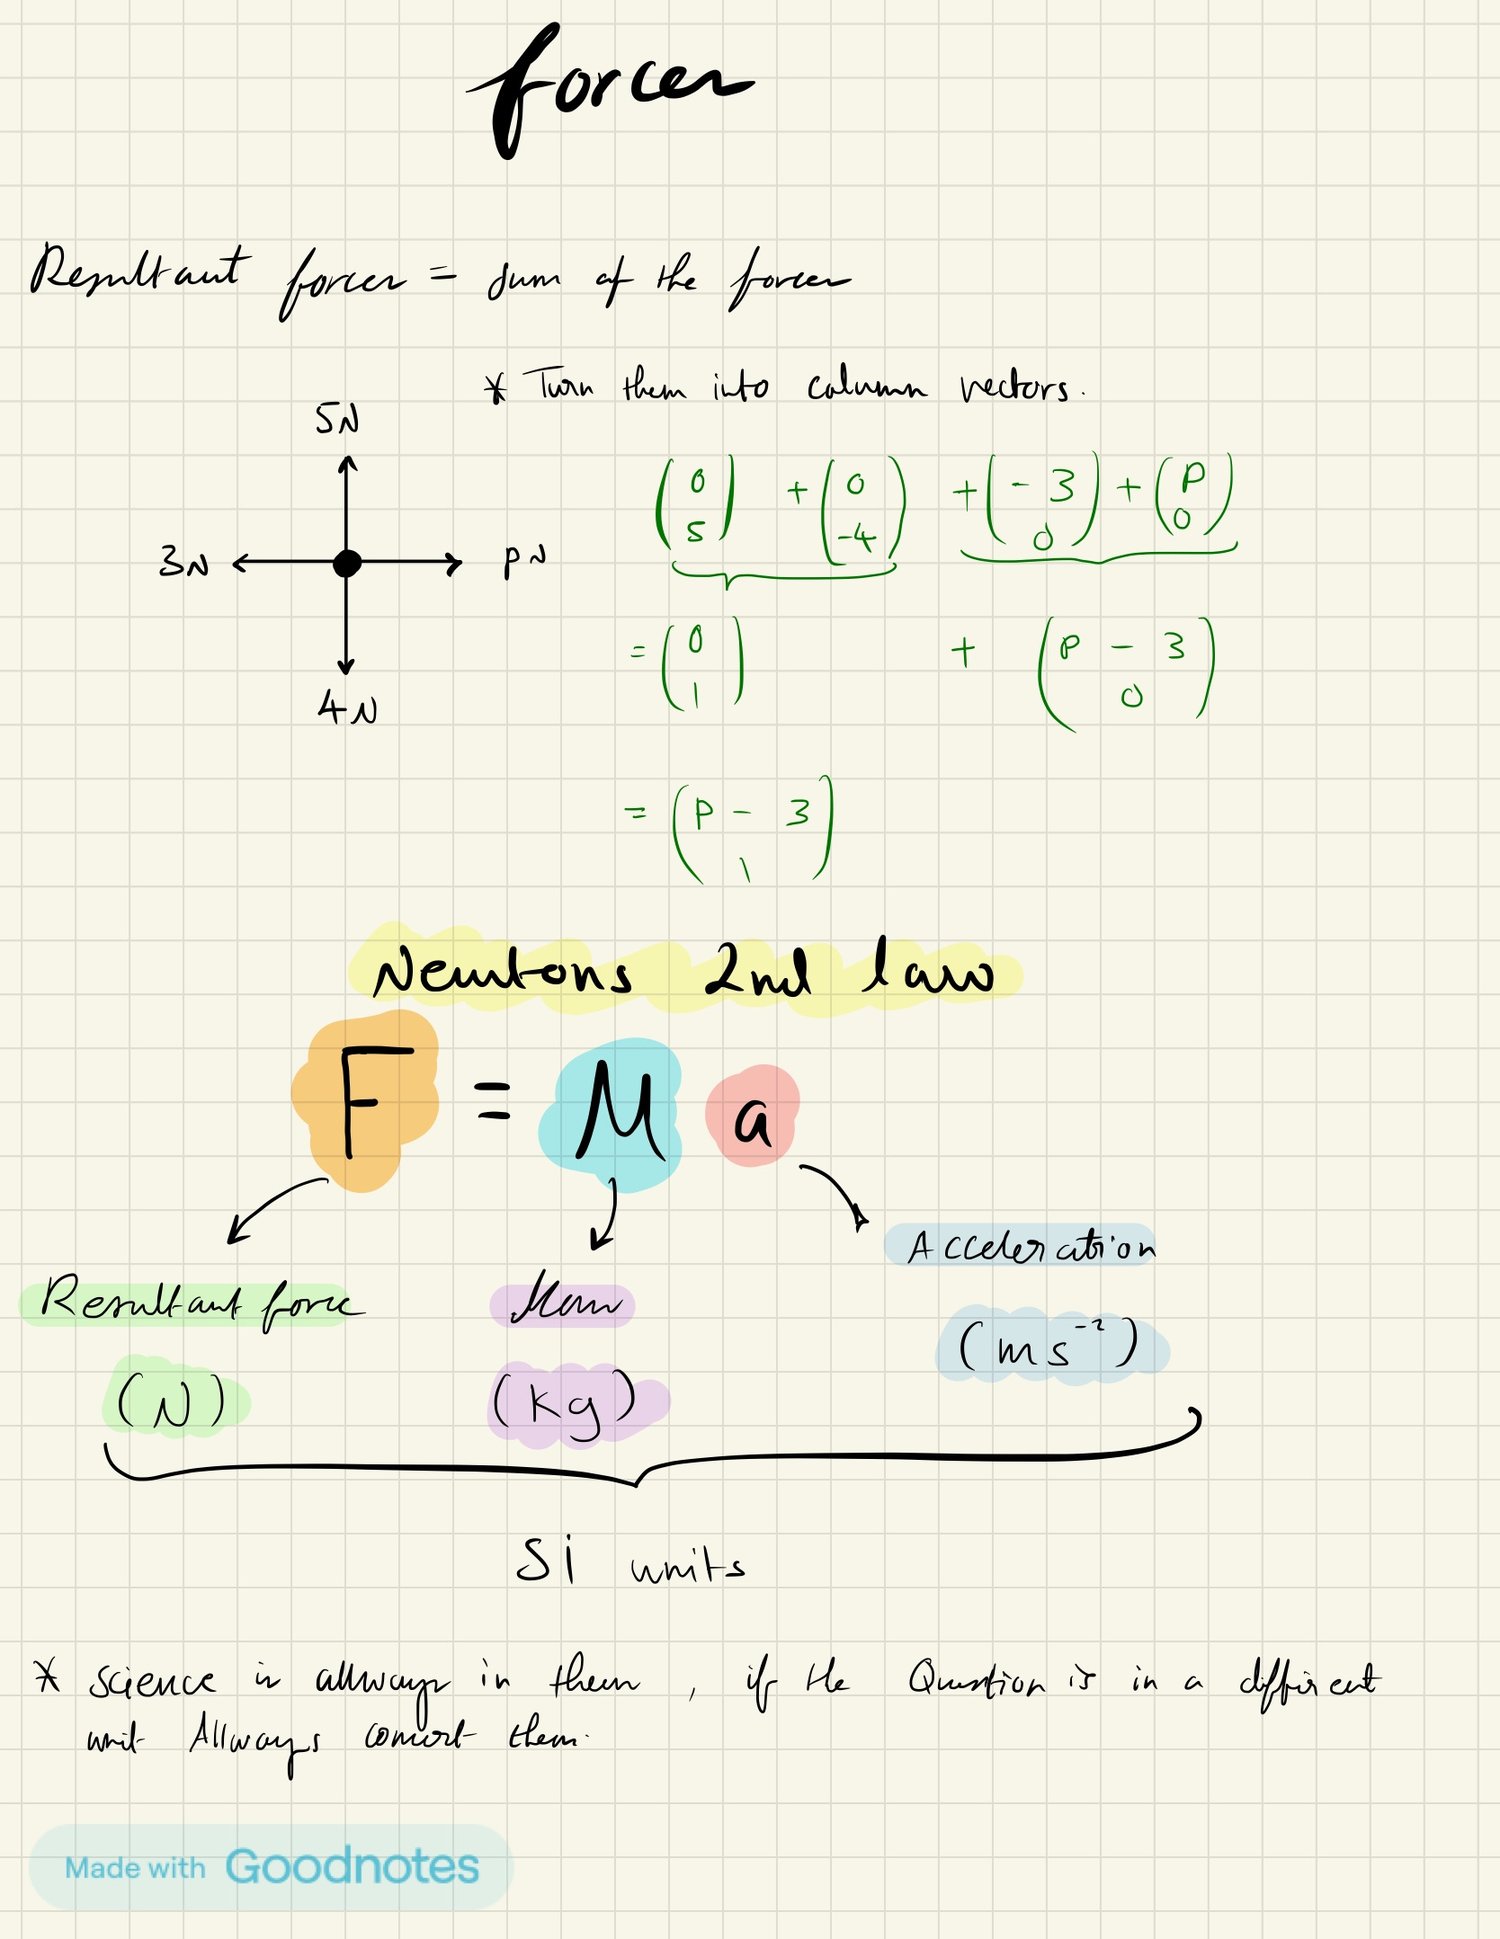 forces
Resultant forces = sum of the forces
* Turn them into column vectors.
5N
3N
pN
4N
(0 5) + (0 -4) + (-3 0) + (P 0)
= (0 1) + (P - 3 0)
= (P - 3 1)
Newtons 2nd law
F = M a
Acceleration
Resultant force
Mass
(ms⁻²)
(N)
(Kg)
Si units
* Science is allways in them, if the Question is in a different
unit Allways convert them.
Made with Goodnotes